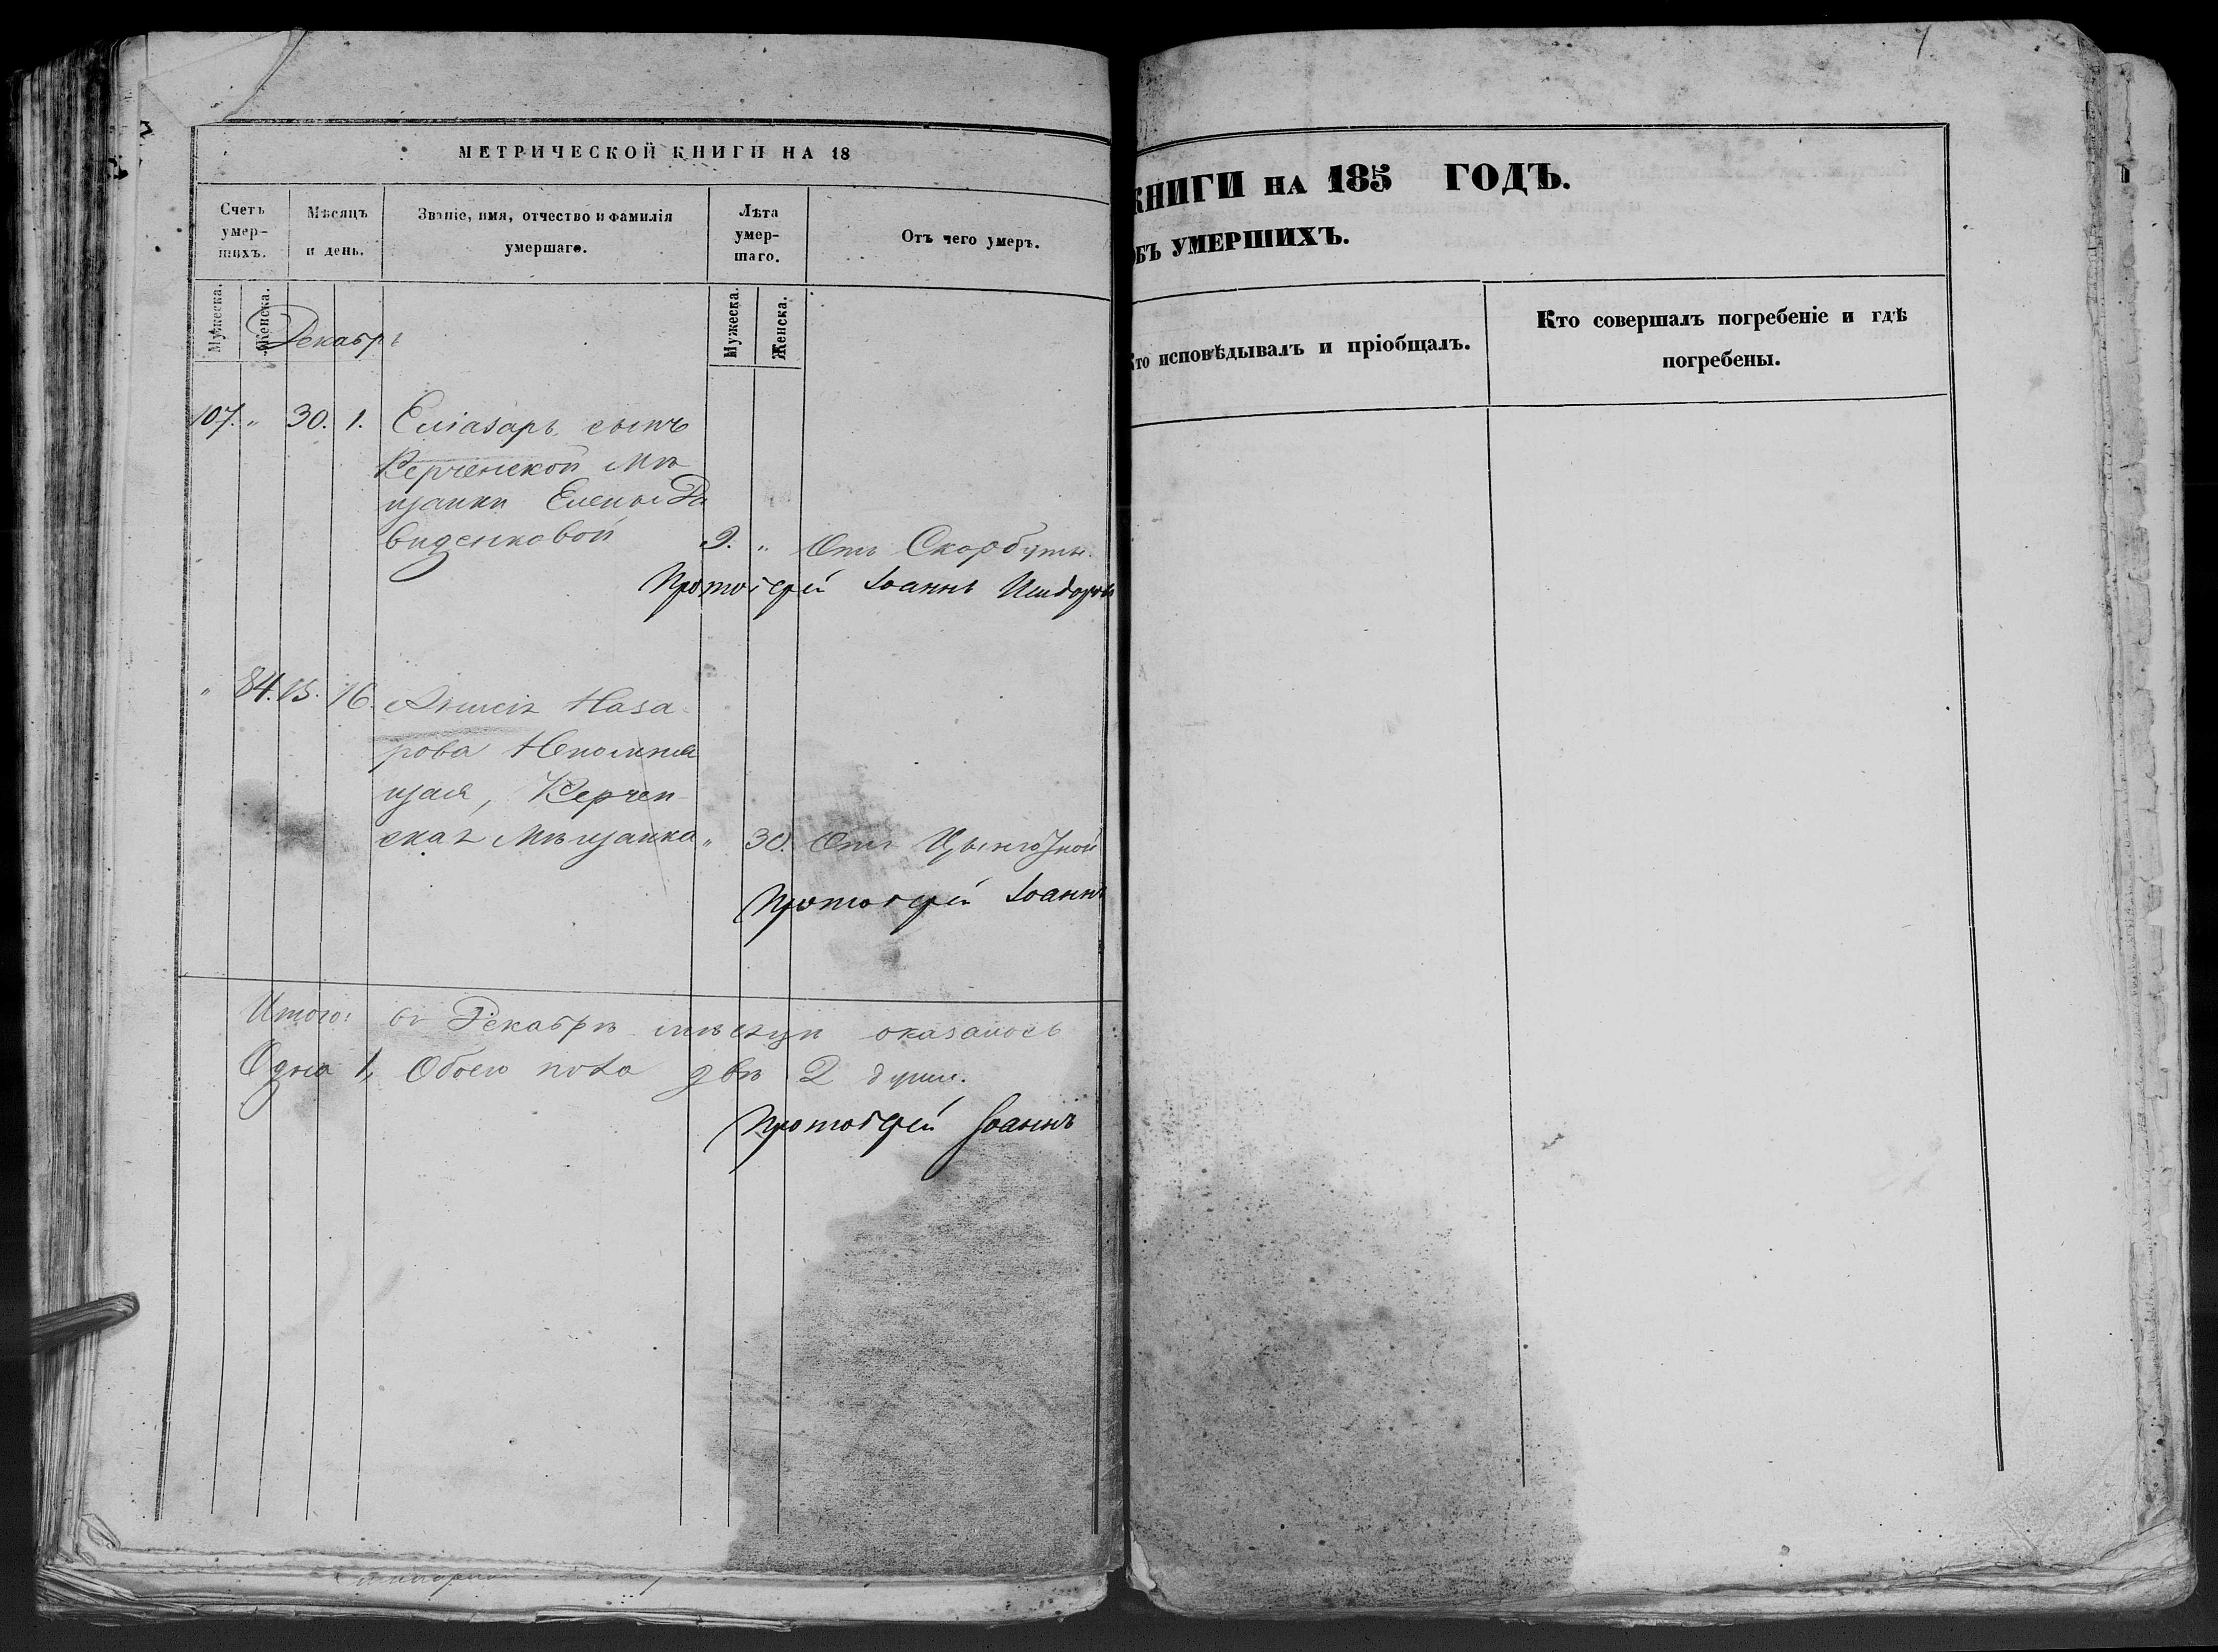 МЕТРИЧЕСКОЙ КНИГИ НА 18
Счетъ умер-шихъ.
Мѣсяцъ и день.
Званіе, имя, отчество и фамилія умершаго.
Лѣта умер-шаго.
Отъ чего умеръ.
Мужеска.
Женска.
Мужеска.
Женска.
Декабрь
107. „ 30. 1. Еліазаръ, сынъ
Керченской мѣ
щанки Елены Да
виденковой 9. „ Отъ Скорбуты.
Протоіерей Іоаннъ
„ 84. 15. 16. Анисія Наза
рова Непомня
щая, Керчен
ская мѣщанка „ 30. Отъ Цынготной
Протоіерей Іоаннъ
Итого: въ Декабрѣ мѣсяцѣ оказалось
Одна 1, Обоего пола двѣ 2 души.
Протоіерей Іоаннъ
КНИГИ НА 185 ГОДЪ.
ОБЪ УМЕРШИХЪ.
Кто исповѣдывалъ и пріобщалъ.
Кто совершалъ погребеніе и гдѣ
погребены.